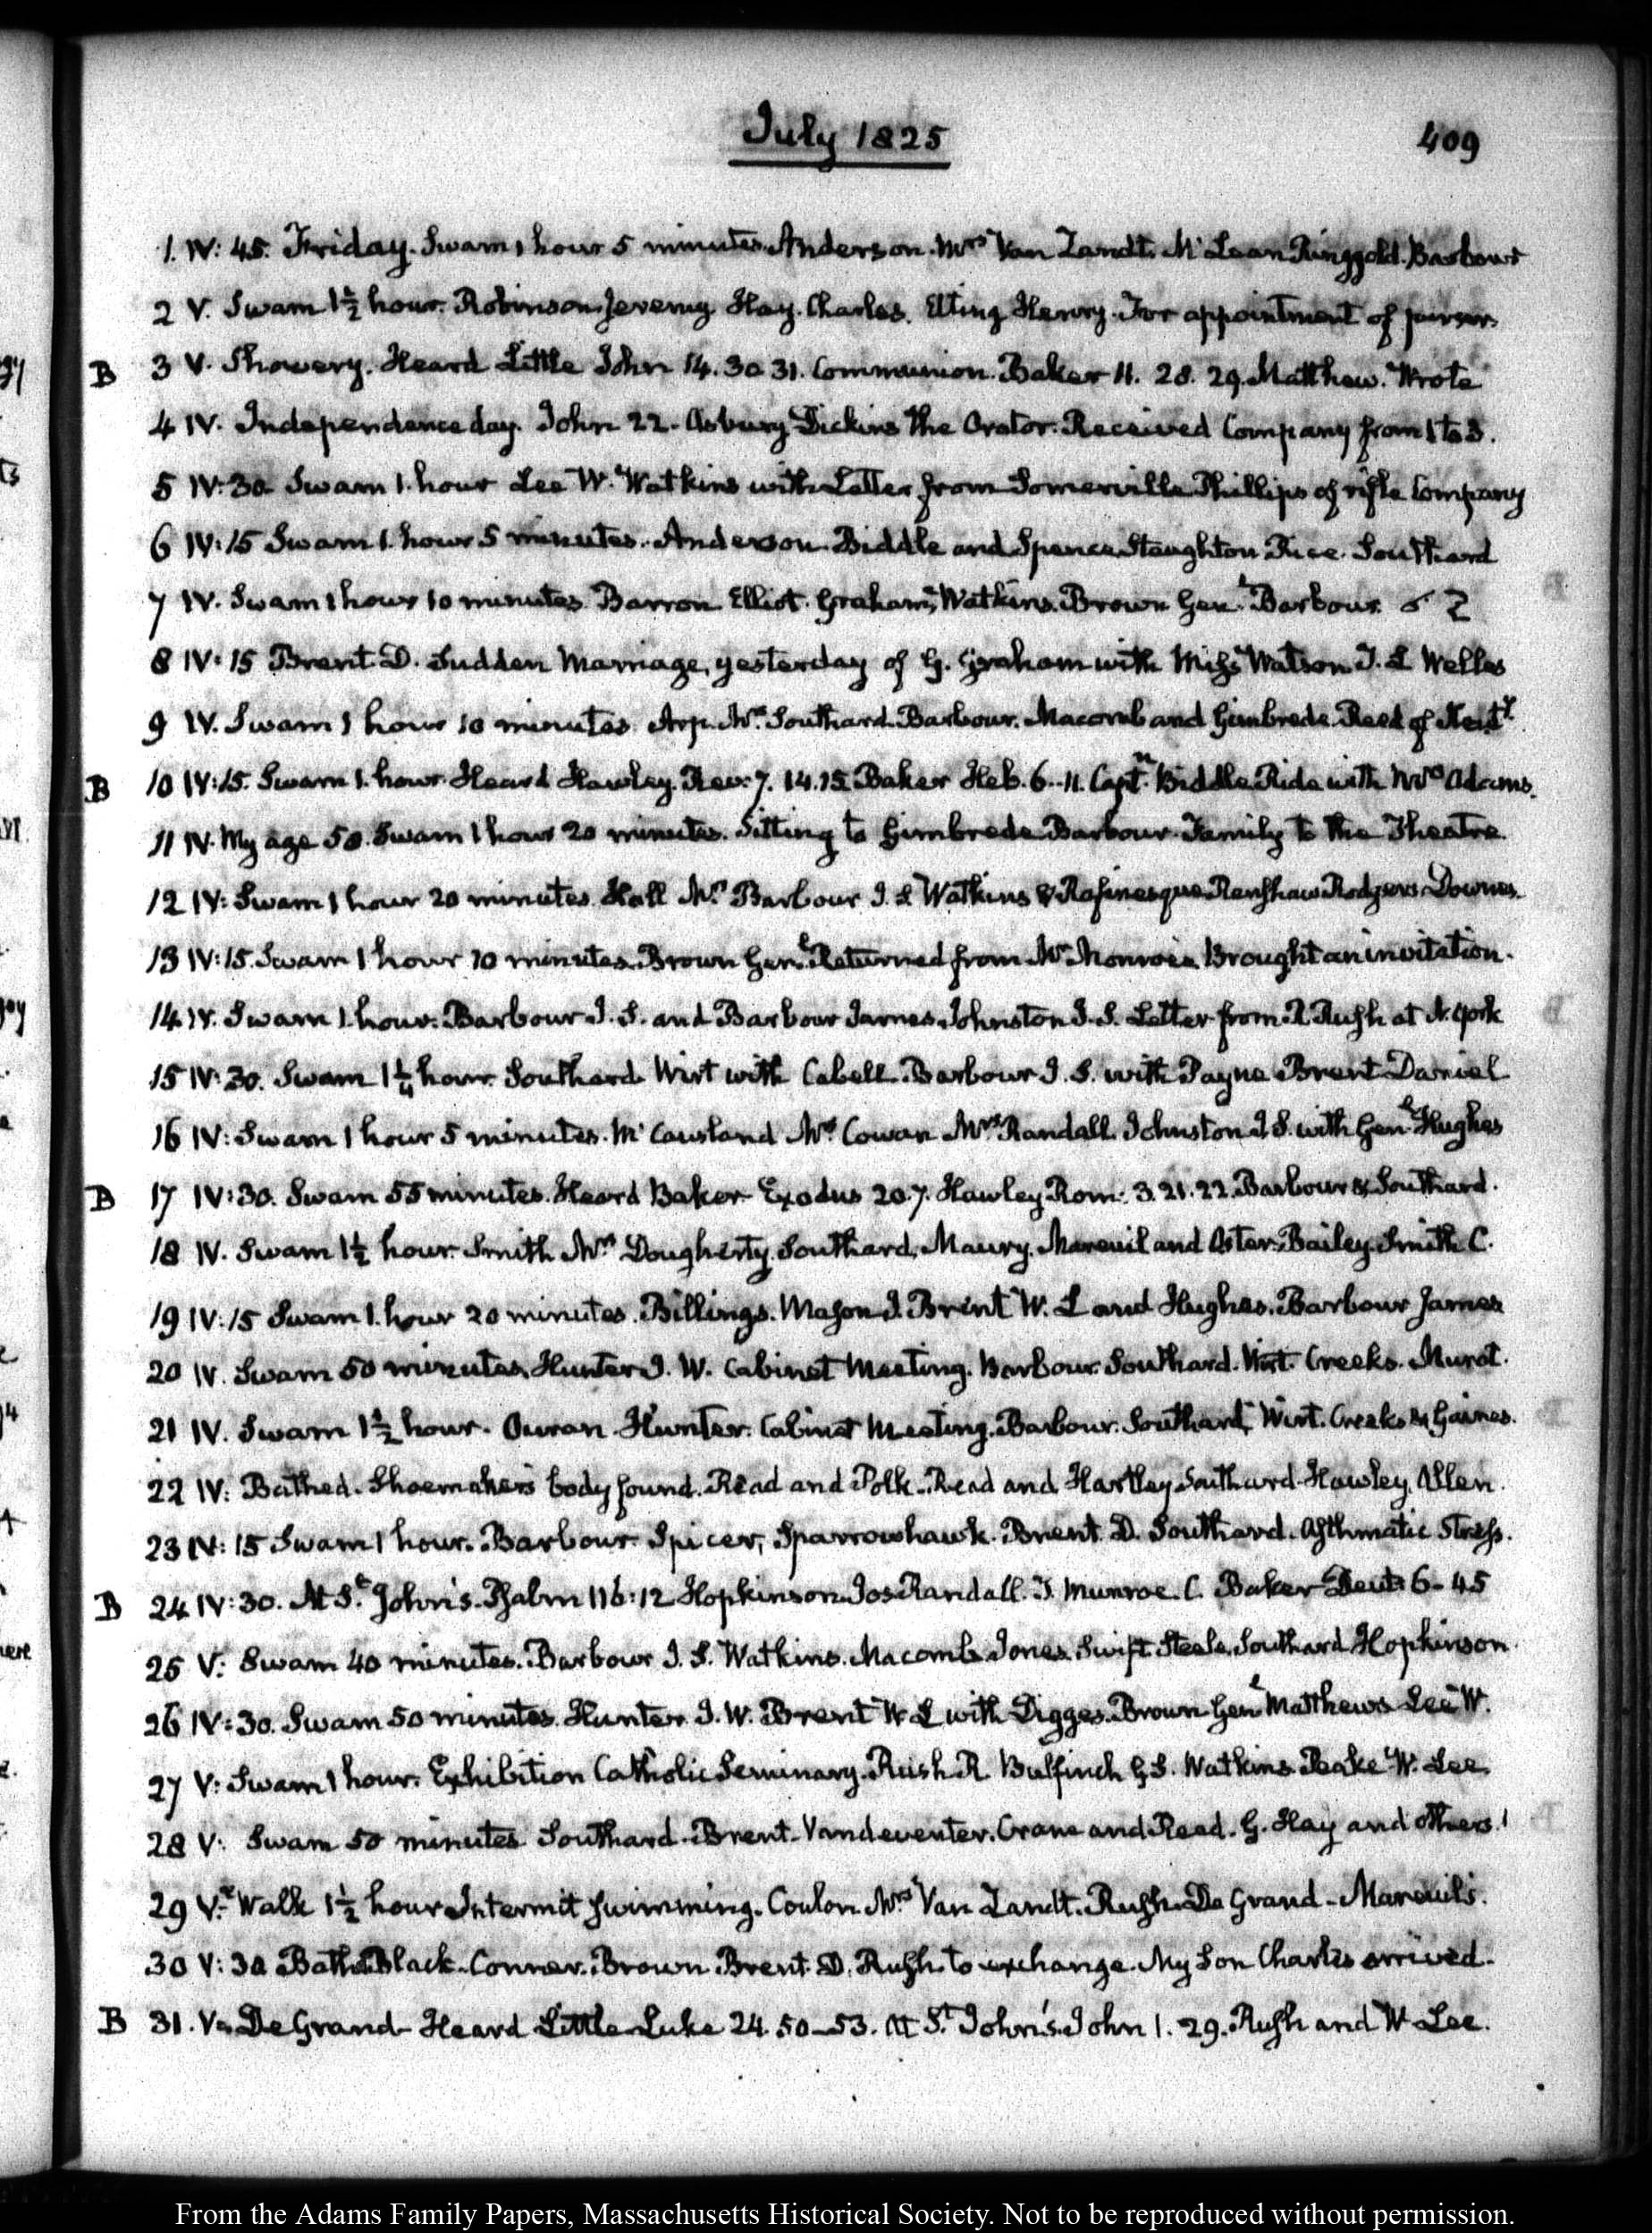 July 1825
409
1. IV: 45. Friday. Swam 1 hour 5 minutes. Anderson. Mrs Van Zandt. McLean Ringgold. Barbour
2 V. Swam 1 1/2 hour. Robinson Jeremy Hay. Charles. Elting Henry. For appointment of purser.
B 3 V. Showery. Heard Little John 14. 30 31. Communion. Baker 11. 28. 29. Matthew. Wrote
4 IV. Independence day. John 22. Asbury Dickins the Orator. Received Company from 1 to 3.
5 IV:30. Swam 1. hour Lee W. Watkins with Letter from Somerville Phillips of rifle Company
6 IV:15 Swam 1. hour 5 minutes. Anderson. Biddle and Spence Staughton Tuce. Southard
7 IV. Swam 1 hour 10 minutes. Barron Elliot. Graham, Watkins. Brown Genl Barbour.
8 IV:15 Brent. D. Sudden Marriage, yesterday of G. Graham with Miss Watson J. L Welles
9 IV. Swam 1 hour 10 minutes. Arp. Mrs Southard. Barbour. Macomb and Gimbrede. Reed of Kenty.
B 10 IV:15. Swam 1. hour. Heard Hawley. Rev: 7. 14.15. Baker Heb. 6.-11. Captn Biddle. Ride with Mrs Adams.
11 IV. My age 58. Swam 1 hour 20 minutes. Sitting to Gimbrede. Barbour. Family to the Theatre.
12 IV: Swam 1 hour 20 minutes. Hall Mrs Barbour J. S Watkins & Rafinesque Renshaw Rodgers Downes.
13 IV:15. Swam 1 hour 10 minutes. Brown Genl Returned from Mr Monroe's. Brought an invitation.
14 IV. Swam 1. hour. Barbour J. S. and Barbour James. Johnston J. S. Letter from R Rush at N. York
15 IV:30. Swam 1 1/4 hour. Southard. Wirt with Cabell. Barbour J. S. with Payne Brent Daniel
16 IV: Swam 1 hour 5 minutes. McCausland Mrs Cowan Mrs Randall. Johnston J. S. with Genl Hughes
B 17 IV:30. Swam 55 minutes. Heard Baker Exodus 20.7. Hawley Rom. 3. 21. 22. Barbour & Southard.
18 IV. Swam 1 1/2 hour. Smith Mrs Dougherty. Southard, Maury. Mareuil and Aster. Bailey. Smith C.
19 IV:15 Swam 1. hour 20 minutes. Billings. Mason J. Brent W. L and Hughes. Barbour James
20 IV. Swam 50 minutes, Hunter J. W. Cabinet Meeting. Barbour. Southard. Wirt. Creeks. Murat.
21 IV. Swam 1 1/2 hour. Ouran. Hunter. Cabinet Meeting. Barbour. Southard, Wirt. Creeks & Gaines.
22 IV: Bathed. Shoemaker's body found. Read and Polk. Read and Hartley Southard. Hawley, Allen.
23 IV:15 Swam 1 hour. Barbour. Spicer, Sparrowhawk. Brent. D. Southard. Asthmatic Stress.
B 24 IV:30. At St John's. Psalm 116:12 Hopkinson Jos Randall. J. Munroe. C. Baker Deut: 6-45
25 V: Swam 40 minutes. Barbour J. S. Watkins. Macomb Jones. Swift Steele. Southard Hopkinson.
26 IV:30. Swam 50 minutes. Hunter. J. W. Brent W L with Digges. Brown Genl Matthews Lee W.
27 V: Swam 1 hour. Exhibition Catholic Seminary. Rush R. Bulfinch G. S. Watkins. Peake W. Lee.
28 V: Swam 50 minutes Southard. Brent. Vandeventer. Crane and Read. G. Hay and others.
29 V: Walk 1 1/2 hour Intermit swimming. Coulon Mrs Van Zandt. Rush. De Grand. Mareuil's.
30 V:30 Bath. Black. Conner. Brown. Brent. D. Rush to exchange. My Son Charles arrived.
B 31. V. De Grand. Heard Little Luke 24. 50-53. At St John's. John 1. 29. Rush and W Lee.
From the Adams Family Papers, Massachusetts Historical Society. Not to be reproduced without permission.